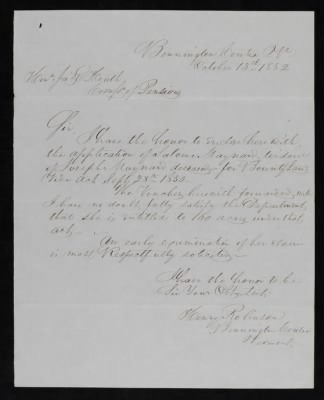 Bennington Centre Vt.
October 13th 1852
Hon. Jas. E. Heath,
Comr. of Pensions
Sir
I have the honor to enclose herewith
the application of Salome Maynard, widow
of Joseph Maynard deceased for Bounty land
under Act Sept. 28th 1850.
The Vouchers herewith furnished, will
I have no doubt, fully satisfy the Department,
that she is entitled to 160 acres under that
act.
An early examination of her claim
is most Respectfully solicited
I have the honor to be
Sir Your Obt. Servt.
Henry Robinson
Bennington Centre
Vermont.